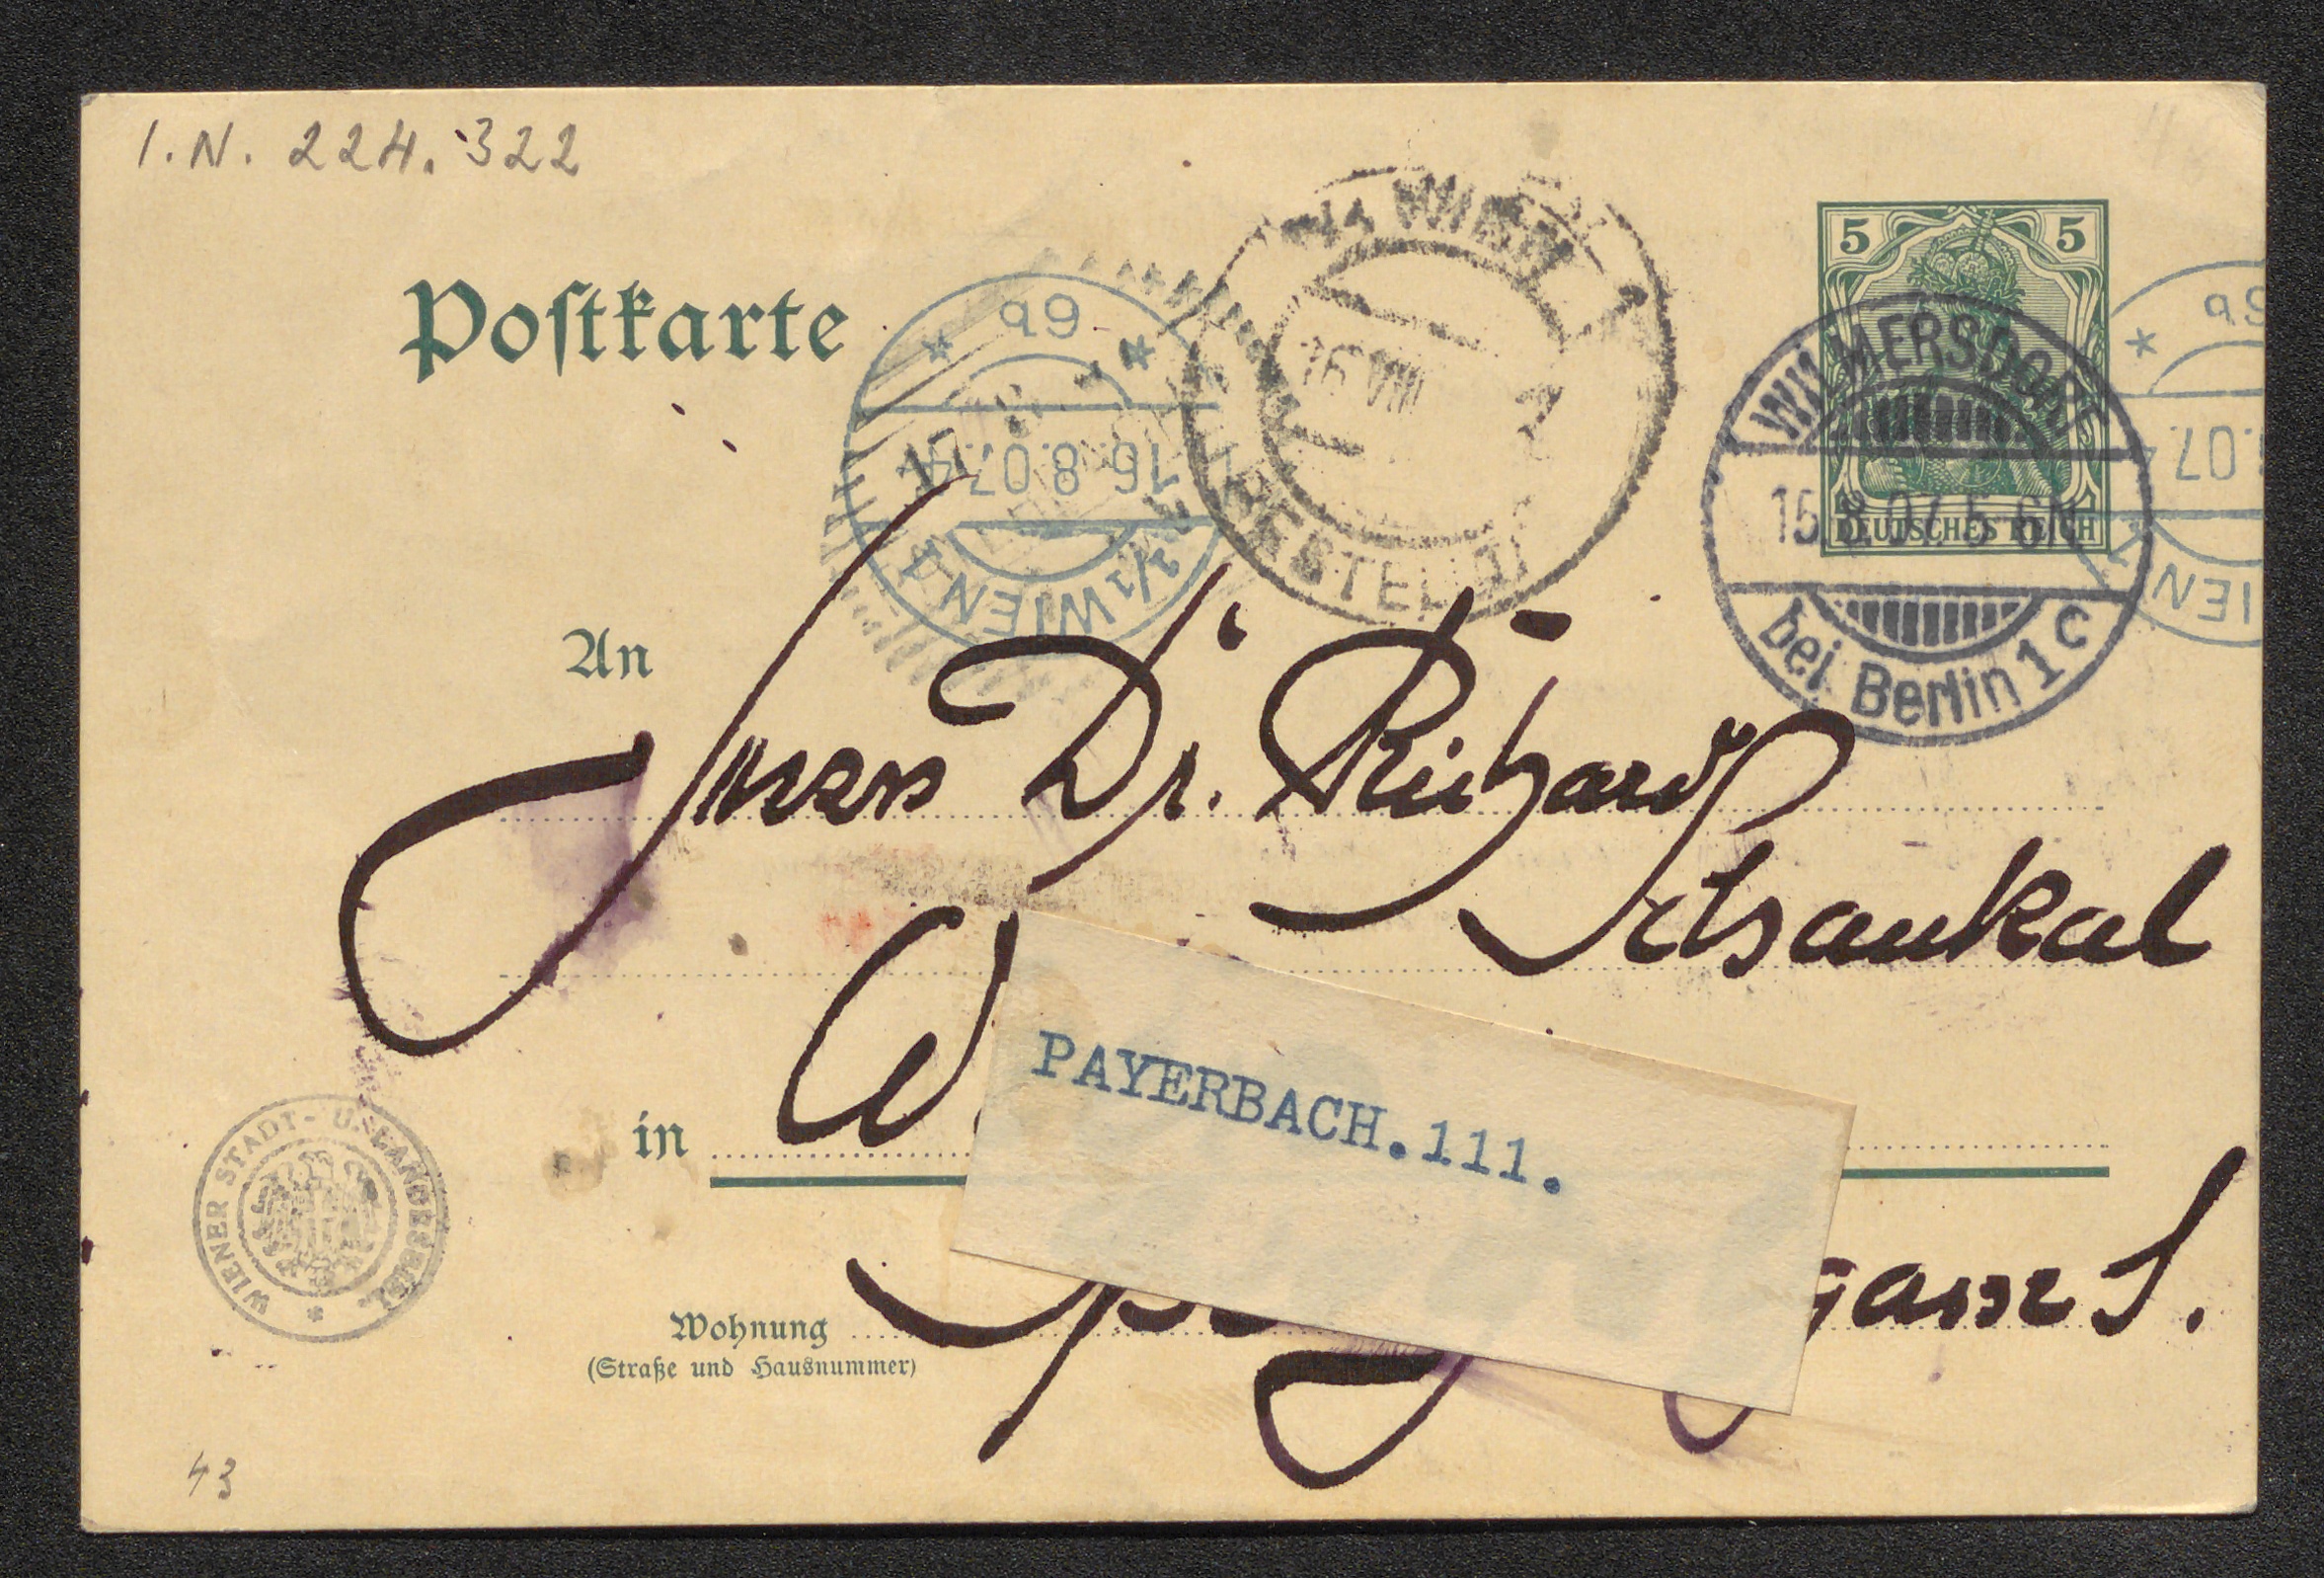 I.N. 224.322
Postkarte
5 5
DEUTSCHES REICH
WILMERSDORF
15.8.07.5-6N
bei Berlin 1 c
WIEN
16 VIII
BESTELLT
9b
16.8.07
1/1 WIEN
9b
.07.
IEN
An
Herrn Dr. Richard
Schaukal
in W
PAYERBACH.111.
Wohnung
gasse 5.
(Straße und Hausnummer)
WIENER STADT- U. LANDESBIBL.
43